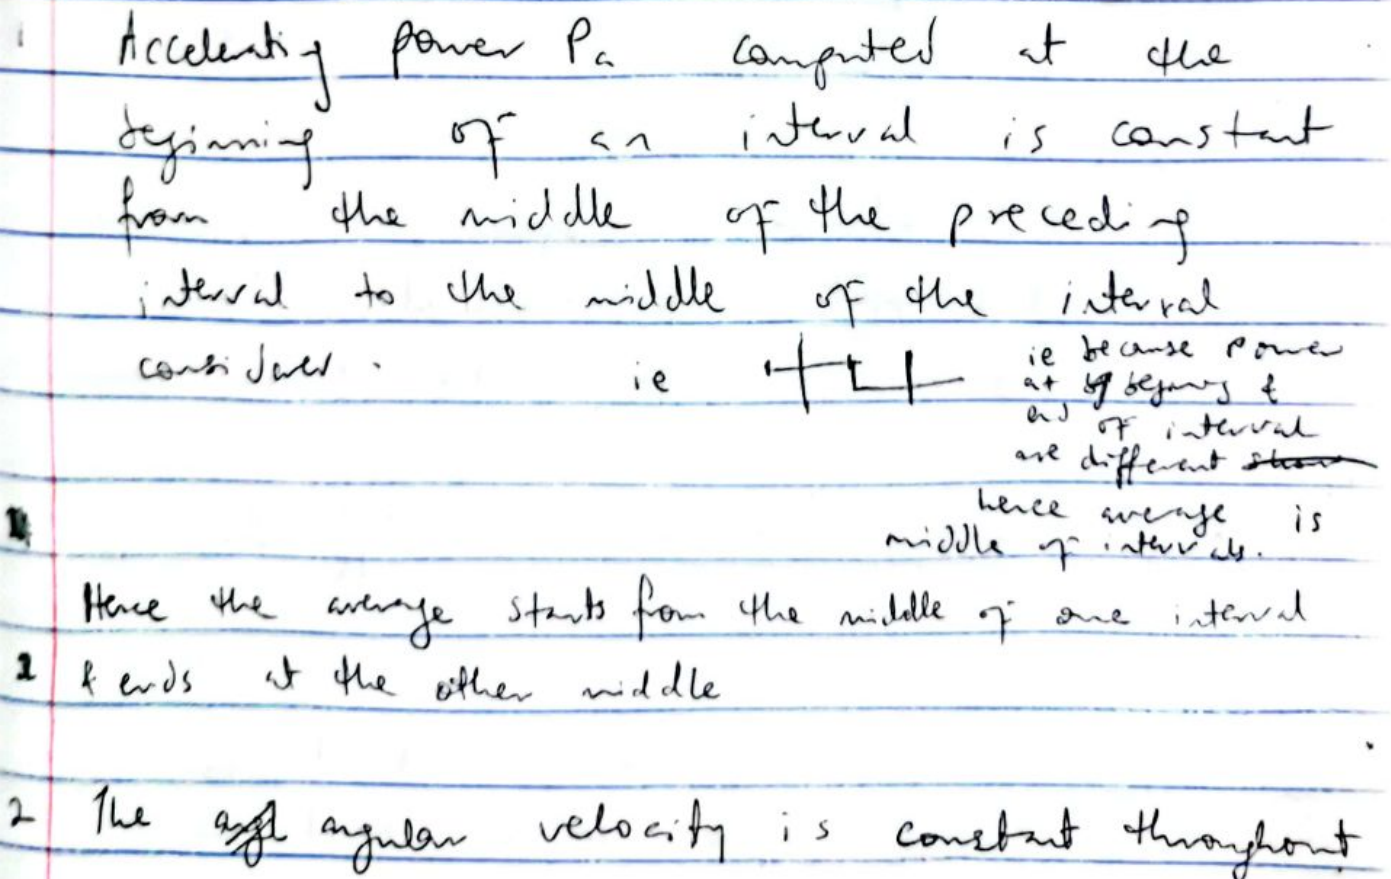 1 Accelerating power Pa computed at the
beginning of an interval is constant
from the middle of the preceding
interval to the middle of the interval
considered. ie
ie because power
at beginning &
end of interval
are different
hence average is
middle of intervals.
Hence the average starts from the middle of one interval
& ends at the other middle
2 The angular velocity is constant throughout